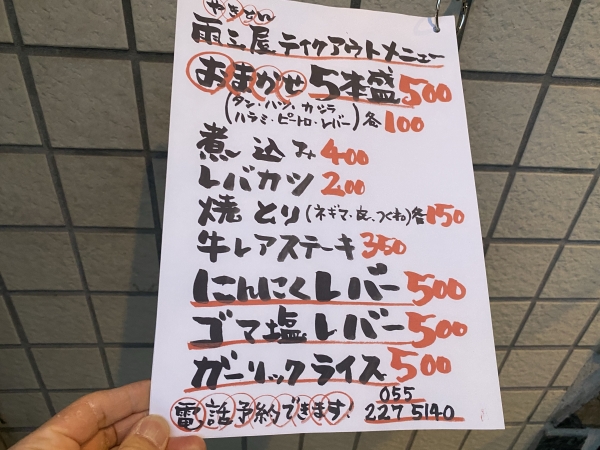 やきとん
雨ニ屋 テイクアウトメニュー
おまかせ 5本盛 500
(タン・ハツ・カシラ
ハラミ・ピートロ・レバー) 各100
煮込み 400
レバカツ 200
焼とり (ネギマ・皮、つくね) 各150
牛レアステーキ 350
にんにくレバー 500
ゴマ塩レバー 500
ガーリックライス 500
電話予約できます! 055
227 5140